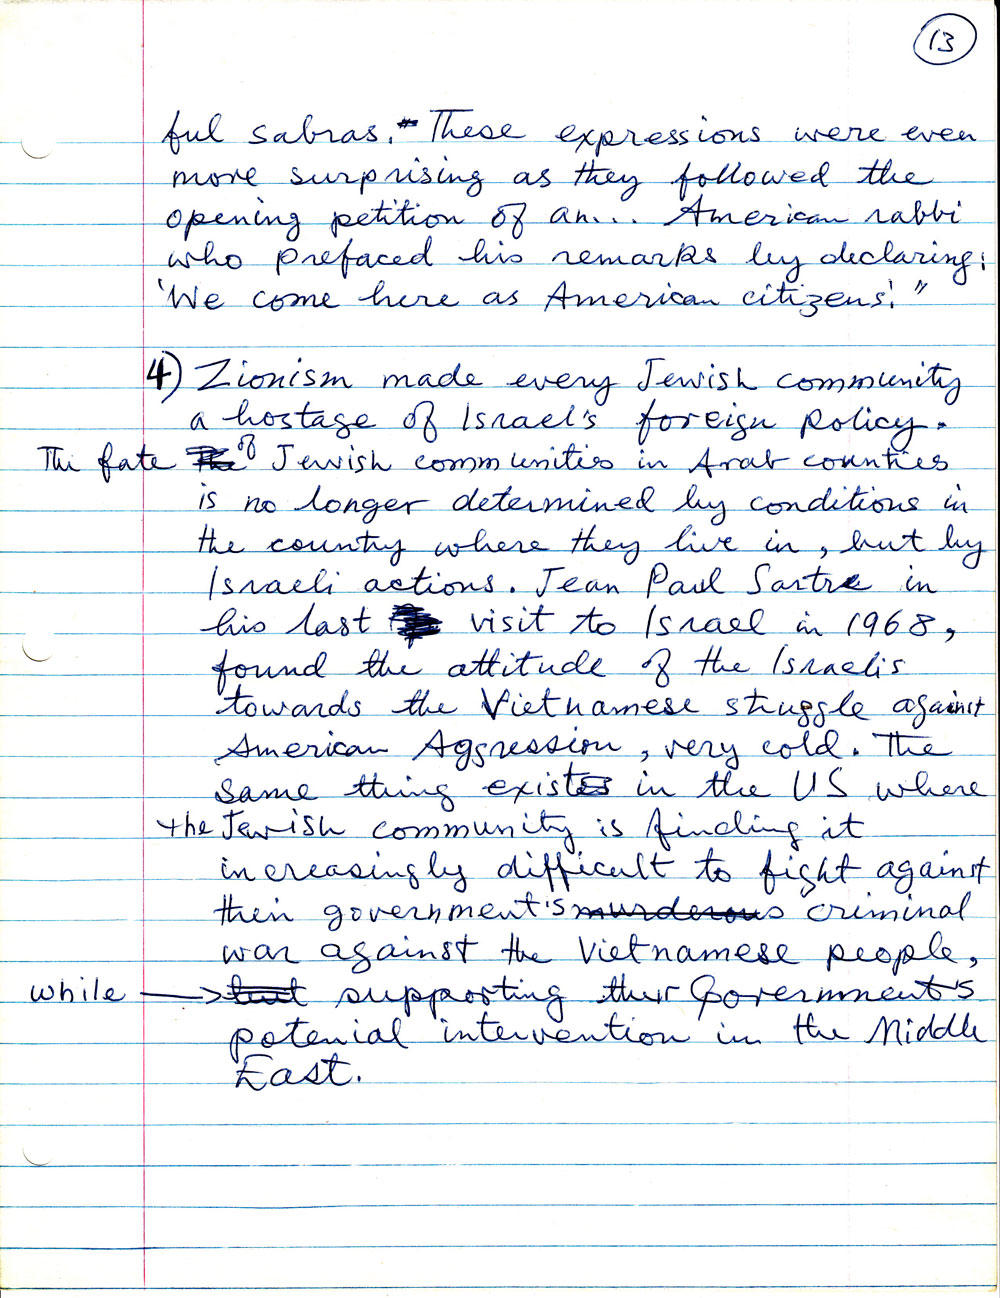 13
ful sabras." These expressions were even
more surprising as they followed the
opening petition of an... American rabbi
who prefaced his remarks by declaring:
'We come here as American citizens.'"
4) Zionism made every Jewish community
a hostage of Israel's foreign policy.
The fate of Jewish communities in Arab counties
is no longer determined by conditions in
the country where they live in, but by
Israeli actions. Jean Paul Sartre in
his last visit to Israel in 1968,
found the attitude of the Israelis
towards the Vietnamese struggle against
American Aggression, very cold. The
same thing exists in the US where
the Jewish community is finding it
increasingly difficult to fight against
their government's murderous criminal
war against the Vietnamese people,
while → but supporting their Government's
potenial intervention in the Middle
East.